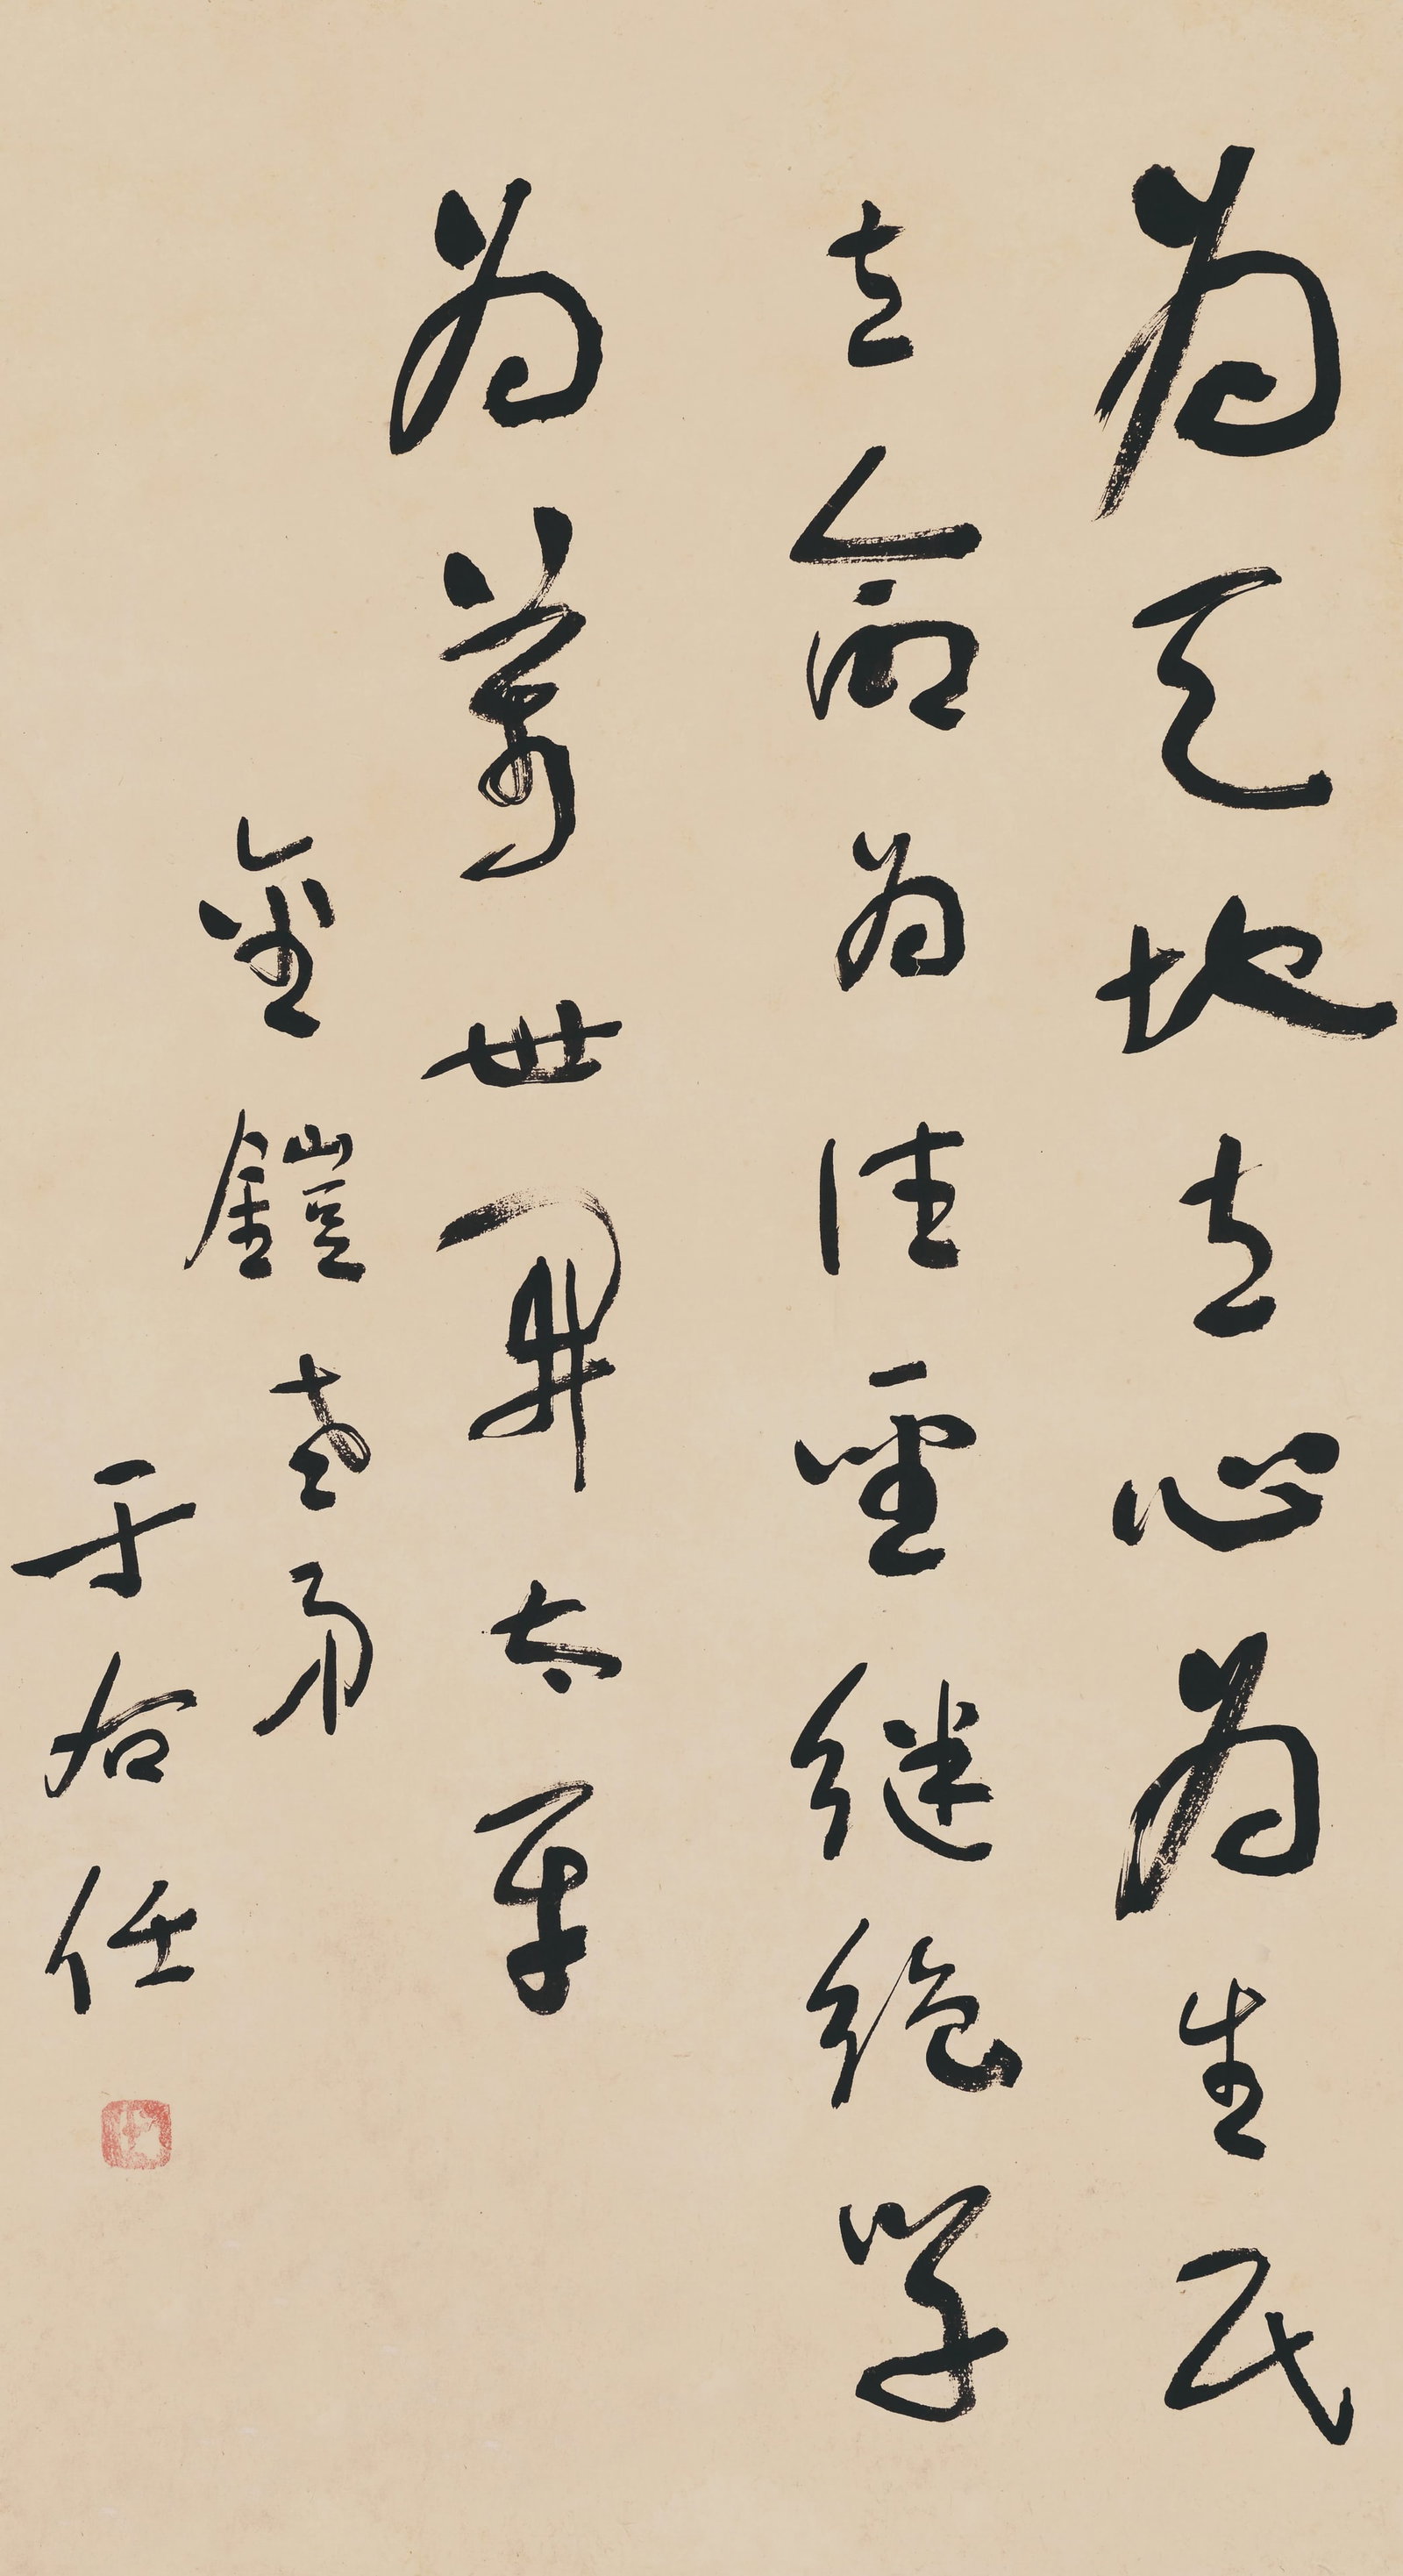 為天地立心為生民
立命為往聖繼絕學
為萬世開太平
金鎧老弟
于右任